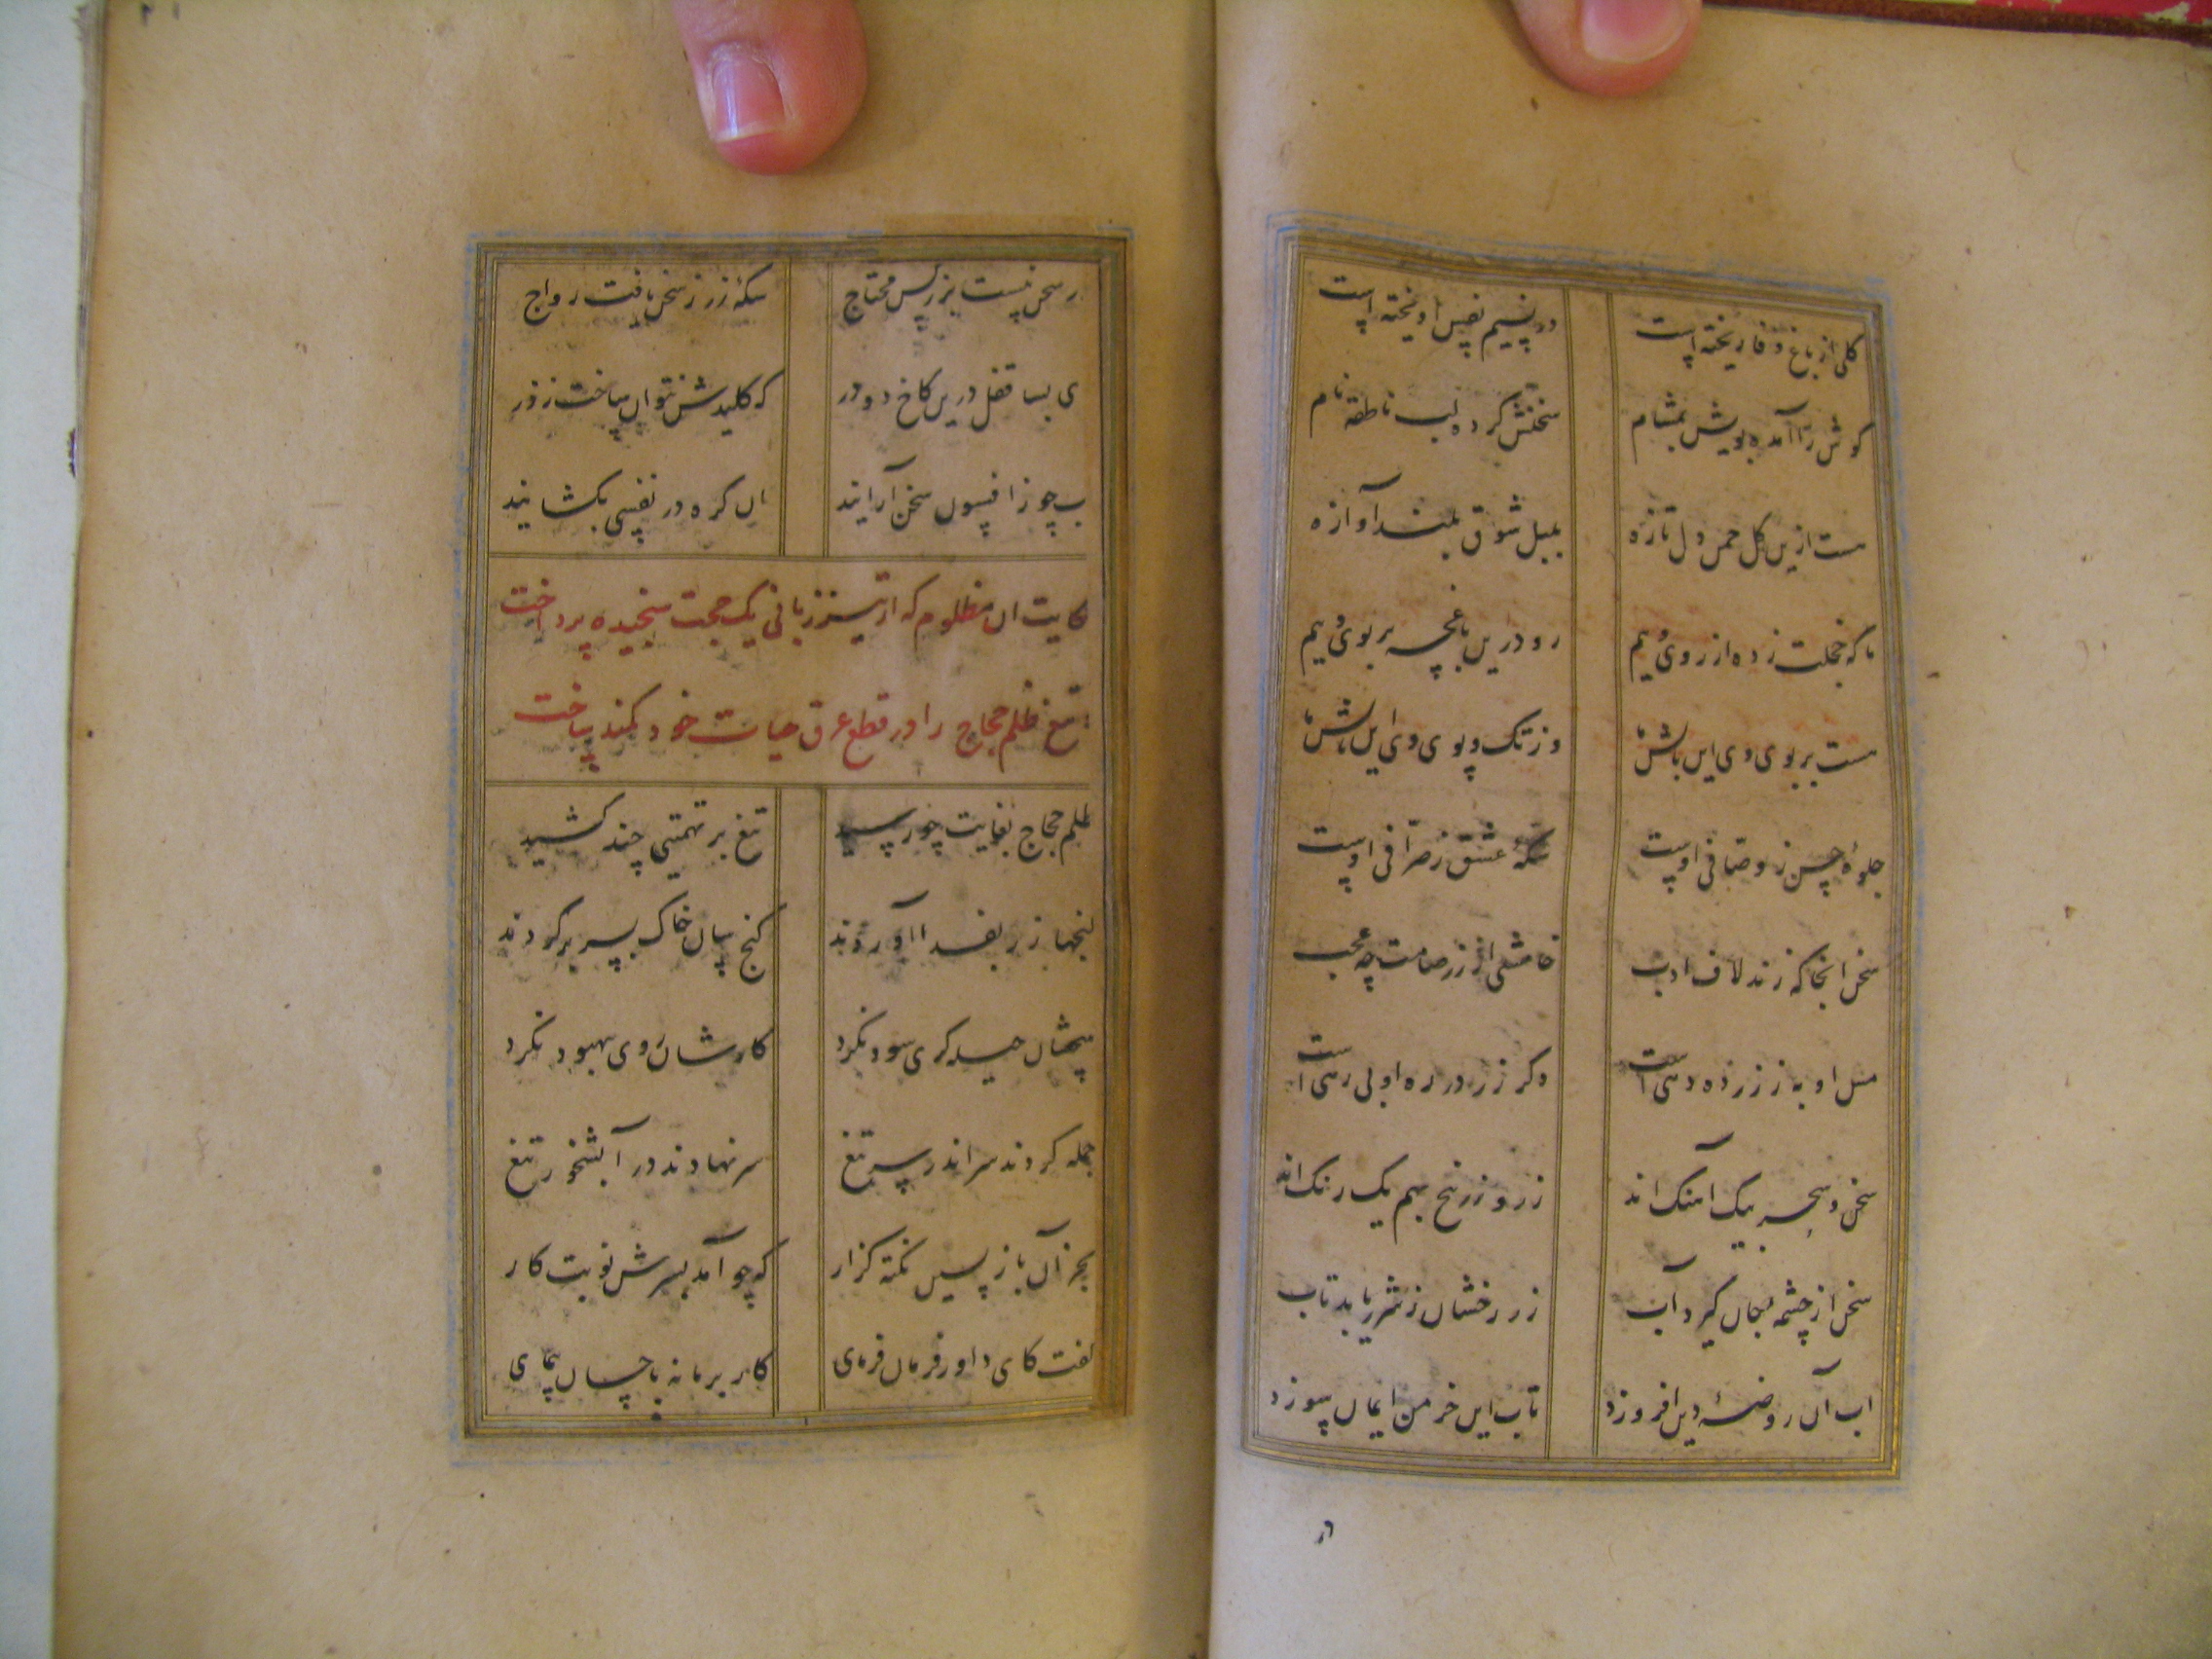 گلی از باغ وفا ریخته است در نسیم نفس آویخته است
گوش را آمده بویش بمشام سخنش کرده لب ناطقه نام
ست ازین گل چمن دل تازه بلبل شوق بلند آوازه
ما که خجلت زده از روی ویُیم رو درین باغچه بر بوی ویُیم
مست بر بوی وی این باشش ما وز تک و پوی وی این باشش ما
جلوه حسن ز وصافی اوست سکهٔ عشق ز صرافی اوست
سخن انجا که زند لاف ادب خامشی از زر صامت چه عجب
او به ز زر ده دهی است وگر زر در ره او بی رهی است
سخن و سحر بیک آهنک اند زر و زرنیخ بهم یک رنک اند
سخن از چشمه جان گیرد آب زر رخشان ز شرر یابد تاب
اب آن روضهٔ دین افروزد تاب این خرمن ایمان سوزد
ر سخن نیست بزر کس محتاج سکهٔ زر ز سخن یافت رواج
ی بسا قفل درین کاخ دو در که کلیدش نتوان ساخت ز زر
ب چو ز افسون سخن آرایند ان کره در نفسی بکشایند
کایت ان مظلوم که از تیز زبانی یک حجت سنجیده پرداخت
تیغ ظلم حجاج را در قطع عرق حیات خود کند ساخت
ظلم حجاج بغایت چو رسید تیغ بر تهمتیی چند کشید
کنجها زر بفدا آوردند کنج سان خاک بسر بر کردند
هیچشان حیله کری سود نکرد کارشان روی ببهبود نکرد
جمله کردند سر اندر سر تیغ سر نهادند در آبشخور تیغ
بجز آن باز پسین نکته کزار که چو آمد بسرش نوبت کار
گفت کای داور فرمان فرمای کار بر ما نه باحسان پیمای